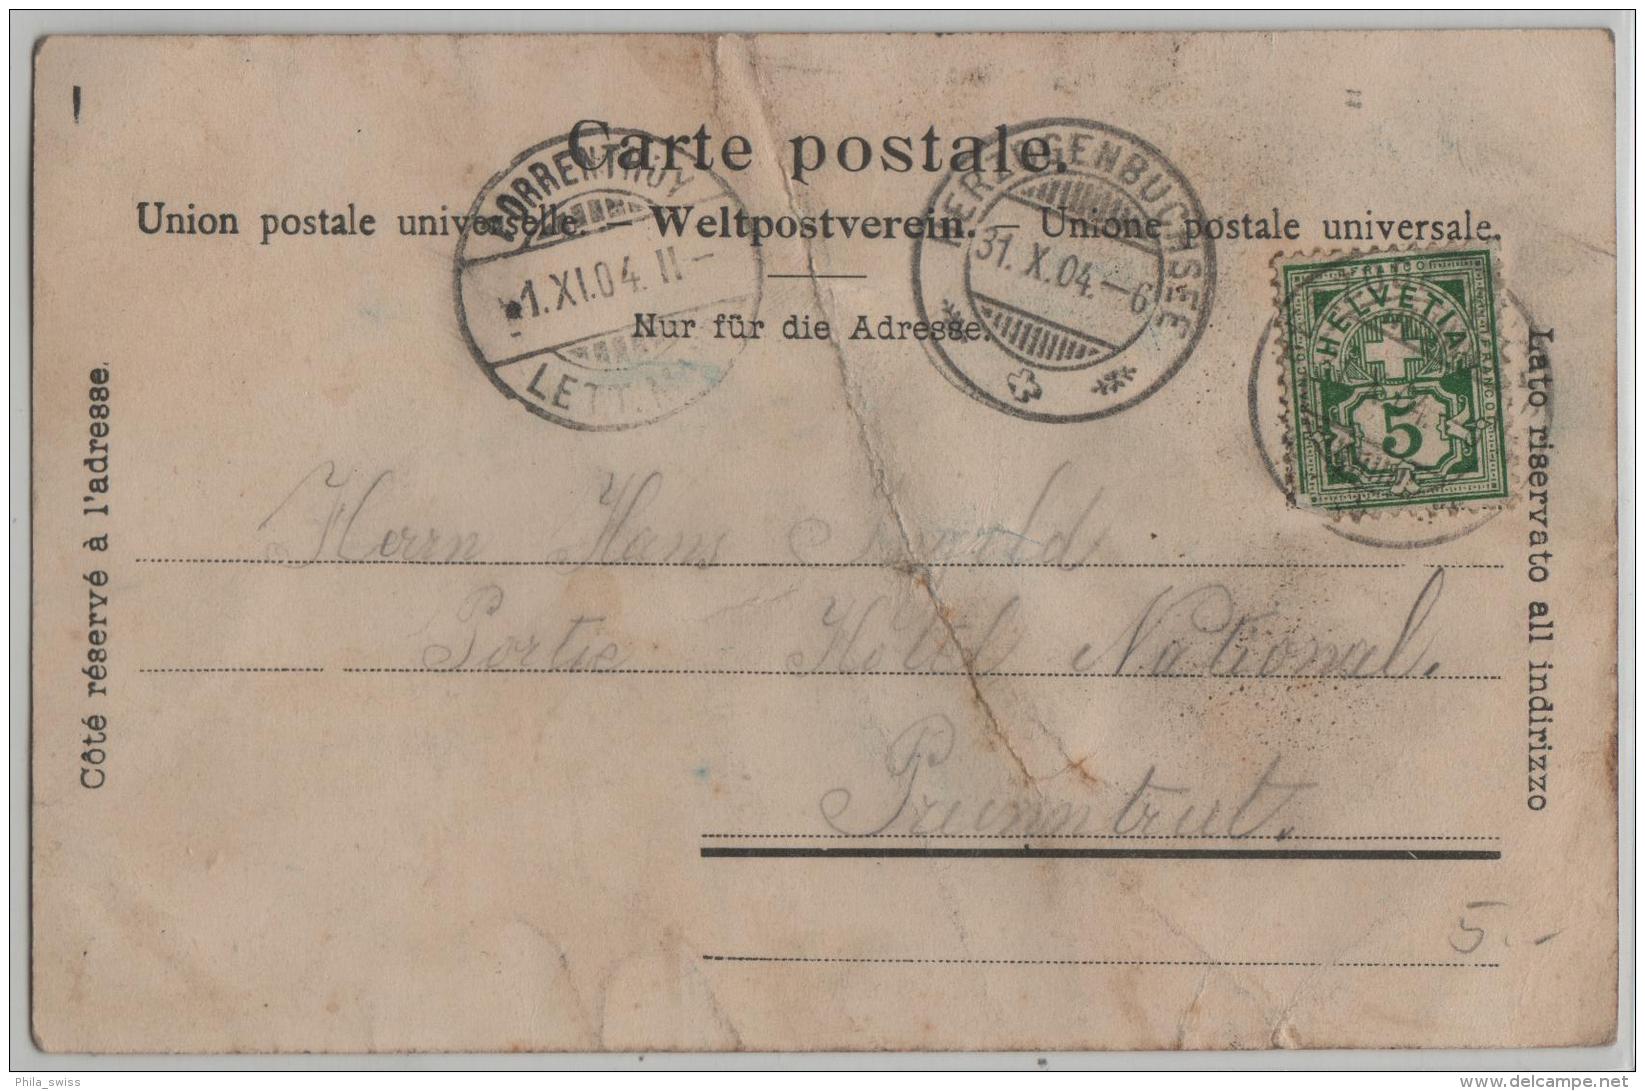 Carte postale.
Union postale universelle. — Weltpostverein. — Unione postale universale.
Nur für die Adresse.
Côté réservé à l'adresse.
Lato riservato all indirizzo
PORRENTRUY
1.XI.04. II–
LETT.
HERZOGENBUCHSEE
31.X.04.–6
FRANCO
HELVETIA
FRANCO
5
Herrn Hans
Portie Hôtel National.
Prunntrut.
5.-
Phila_swiss
delcampe.net